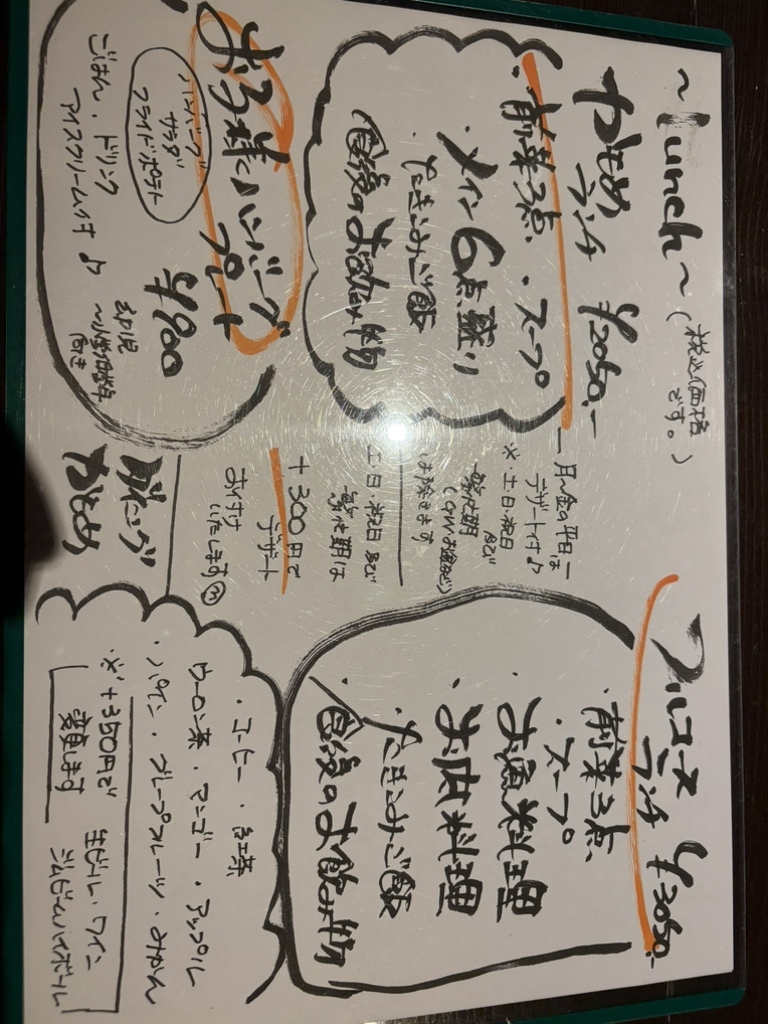 ~ Lunch ~ (税込価格
です。)
かもめ
ランチ ¥2050.-
・前菜3点 ・スープ
・メイン6点盛り
・たきこみご飯
食後のお飲み物
お子様ハンバーグ
プレート
ハンバーグ
サラダ
フライドポテト
¥900
ごはん、ドリンク
アイスクリーム付♪
幼児
~小学低学年
向き
ー月~金の平日はー
デザート付♪
※・土日・祝日
及び
繁忙期
(GW、お盆など)
は除きます
土・日・祝日 及び
繁忙期は
+300円で
デザート
お付け
いたします
フルコース
ランチ ¥3050.-
・前菜3点
・スープ
・お魚料理
・お肉料理
・たきこみご飯
食後のお飲み物
ダイニング
かもめ
・コーヒー ・紅茶
ウーロン茶・マンゴー・アップル
・パイン・グレープフルーツ・みかん
※+350円で
変更します
生ビール・ワイン
ジムビームハイボール